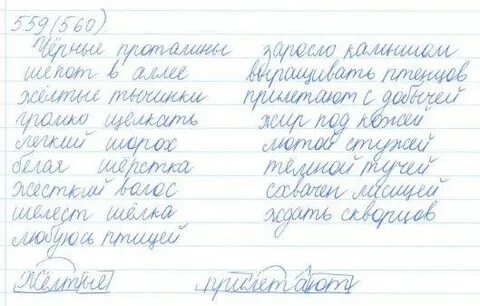 559(560)
Чёрные проталины
шёпот в аллее
жёлтые тычинки
громко щелкать
легкий шорох
белая шёрстка
жесткий волос
шелест шёлка
любуюсь птицей
заросло камышом
выращивать птенцов
прилетают с добычей
жир под кожей
лютой стужей
темной тучей
схвачен лисицей
ждать скворцов
Жёлтые прилетают